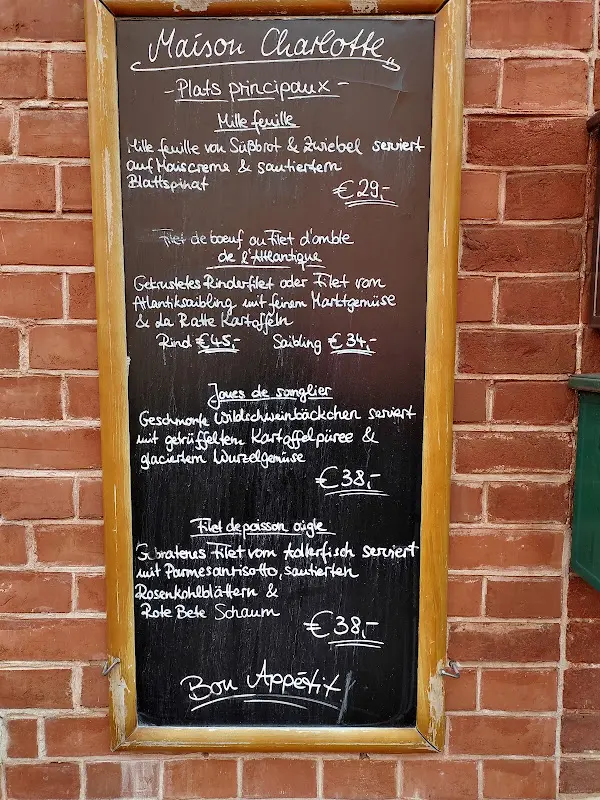 Maison Charlotte
- Plats principaux -
Mille feuille
Mille feuille von Süßbrot & Zwiebel serviert
auf Maiscreme & sautiertem
Blattspinat
€ 29,-
Filet de boeuf ou Filet d'omble
de l'Atlantique
Gekrustetes Rinderfilet oder Filet vom
Atlantiksaibling mit feinem Marktgemüse
& La Ratte Kartoffeln
Rind € 45,- Saibling € 34,-
Joues de sanglier
Geschmorte Wildschweinbäckchen serviert
mit getrüffeltem Kartoffelpüree &
glaciertem Wurzelgemüse
€ 38,-
Filet de poisson aigle
Gebratenes Filet vom Adlerfisch serviert
mit Parmesanrisotto, sautierten
Rosenkohlblättern &
Rote Bete Schaum
€ 38,-
Bon Appétit